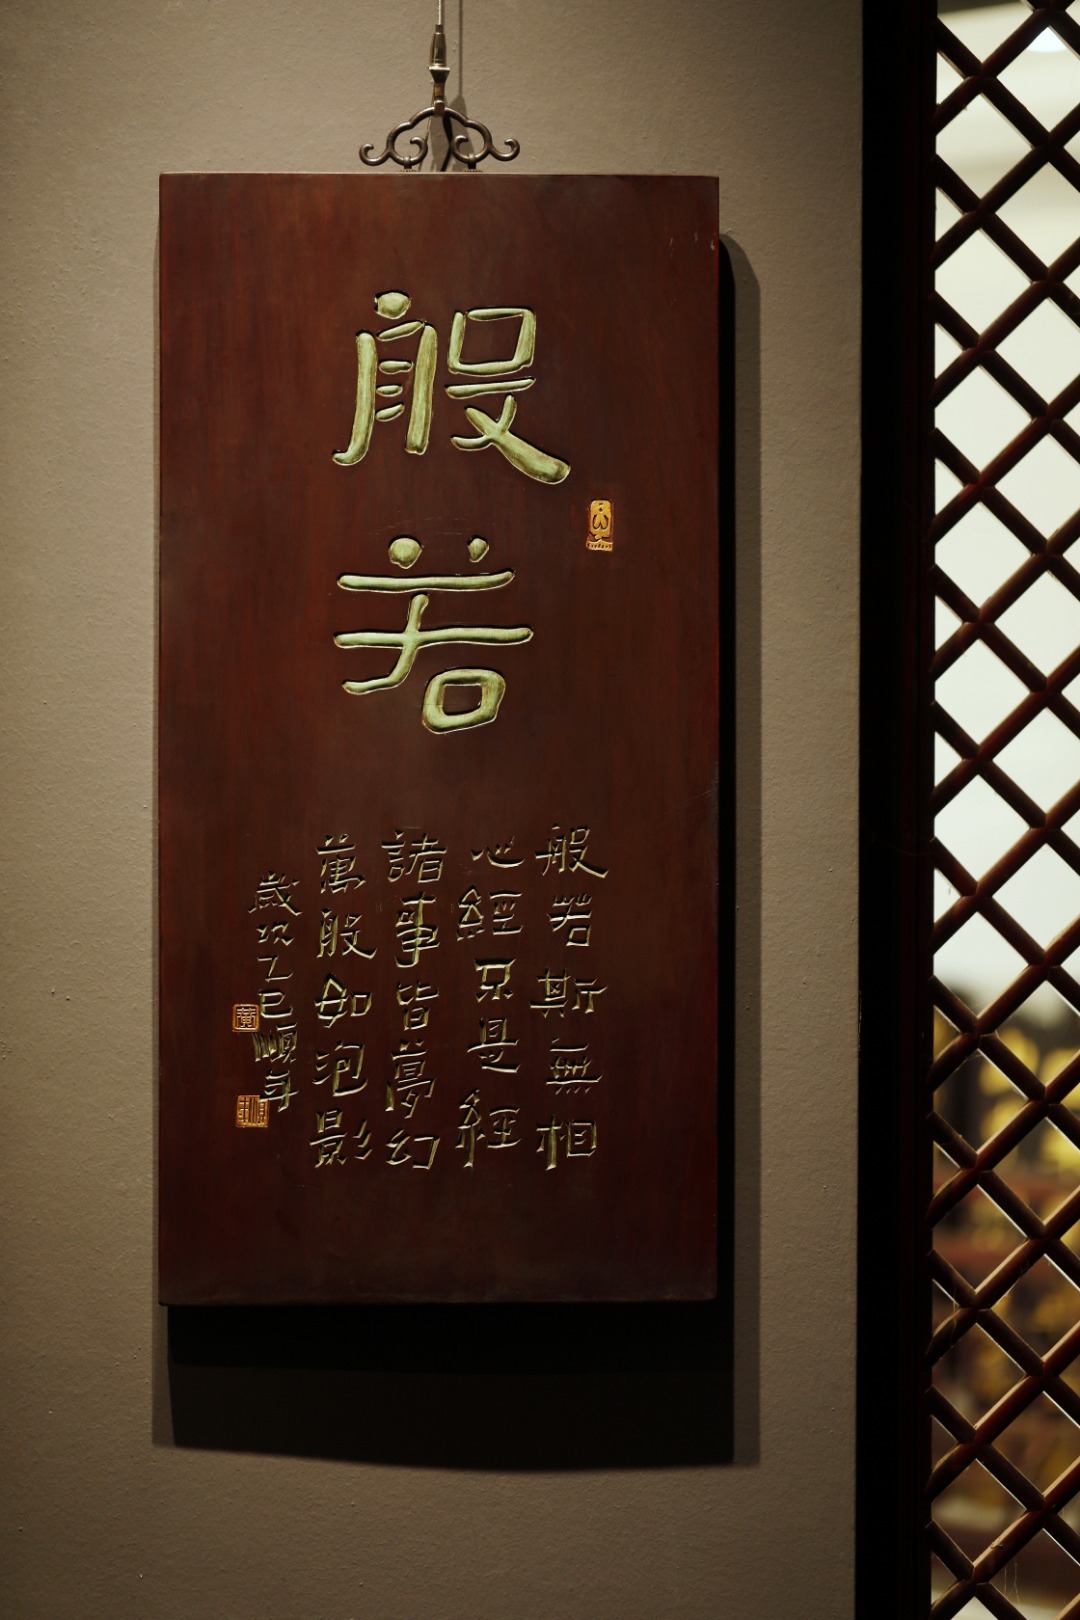 般若
般若斯無相
心經只是經
諸事皆夢幻
萬般如泡影
歲次乙巳順年
黃